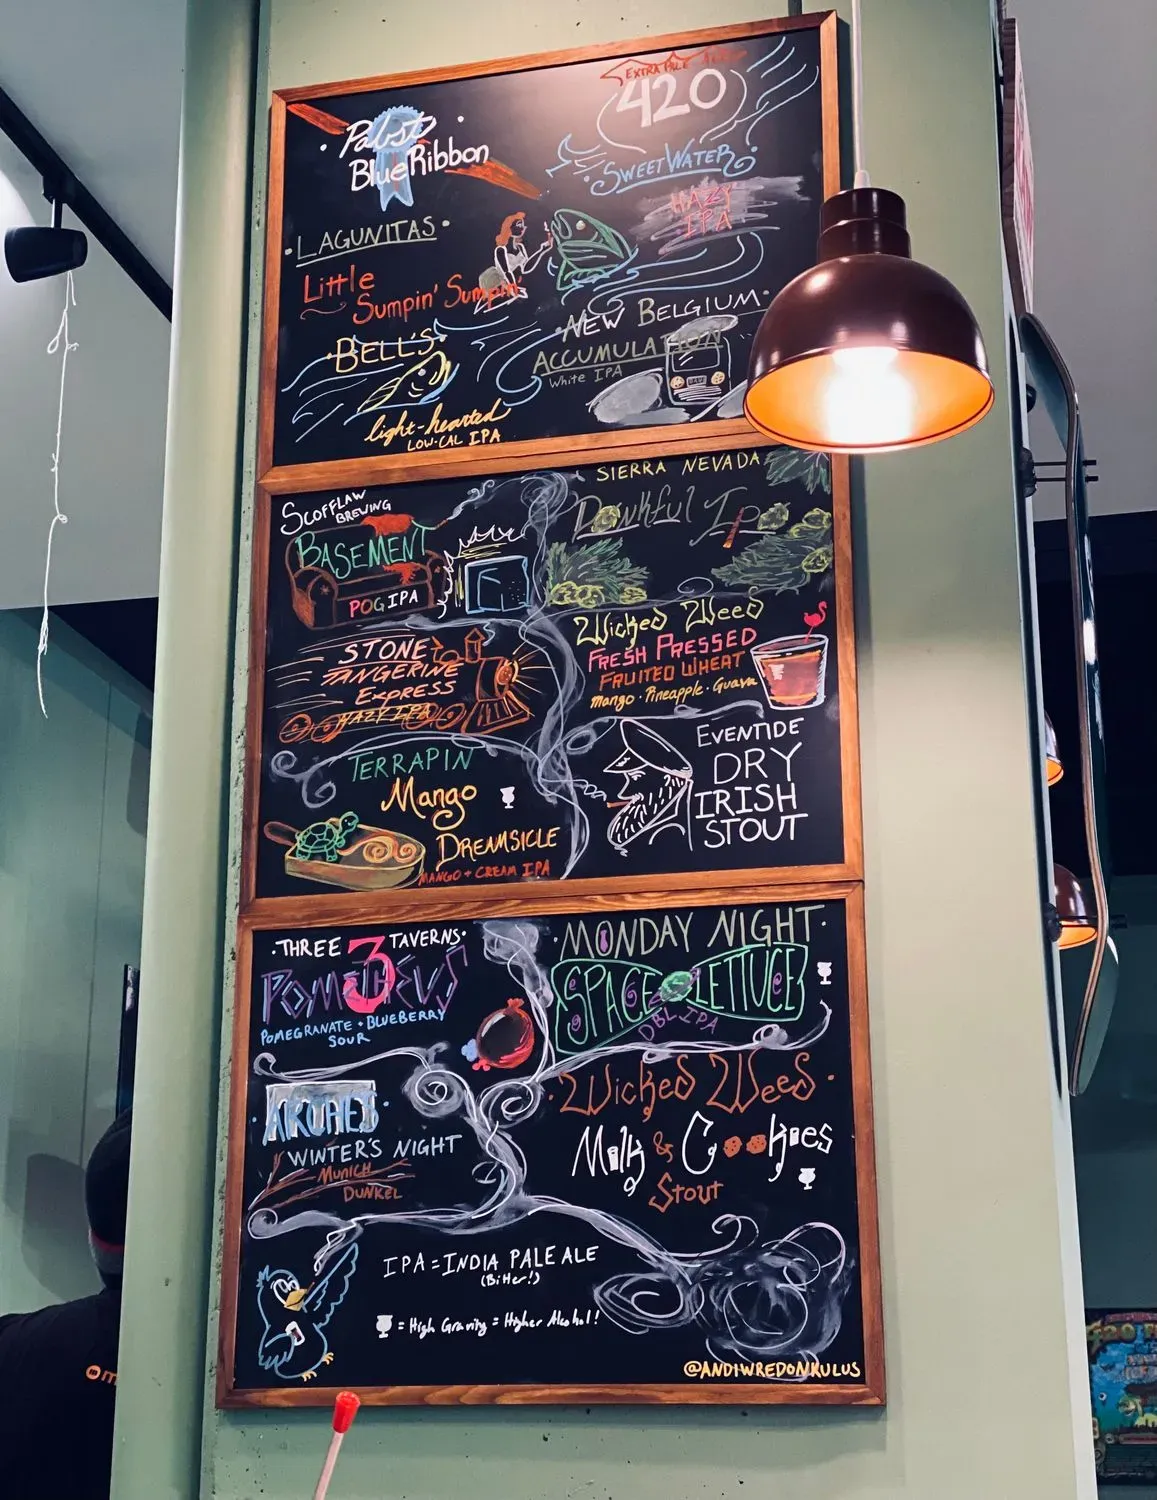 Pabst
Blue Ribbon
LAGUNITAS
Little
Sumpin' Sumpin'
BELL'S
light-hearted
LOW-CAL IPA
EXTRA PALE ALE
420
SWEETWATER
HAZY
IPA
NEW BELGIUM
ACCUMULATION
White IPA
SCOFFLAW
BREWING
BASEMENT
POG IPA
STONE
TANGERINE
EXPRESS
HAZY IPA
TERRAPIN
Mango
DREAMSICLE
MANGO + CREAM IPA
SIERRA NEVADA
Dankful IPA
Wicked Weed
FRESH PRESSED
FRUITED WHEAT
Mango · Pineapple · Guava
EVENTIDE
DRY
IRISH
STOUT
·THREE 3 TAVERNS·
POMETHEUS
POMEGRANATE + BLUEBERRY
SOUR
ARCHES
WINTER'S NIGHT
MUNICH
DUNKEL
·MONDAY NIGHT·
SPACE LETTUCE
DBL IPA
·Wicked Weed·
Milk & Cookies
Stout
IPA = INDIA PALE ALE
(Bitter!)
= High Gravity = Higher Alcohol!
@ANDIWREDONKULUS